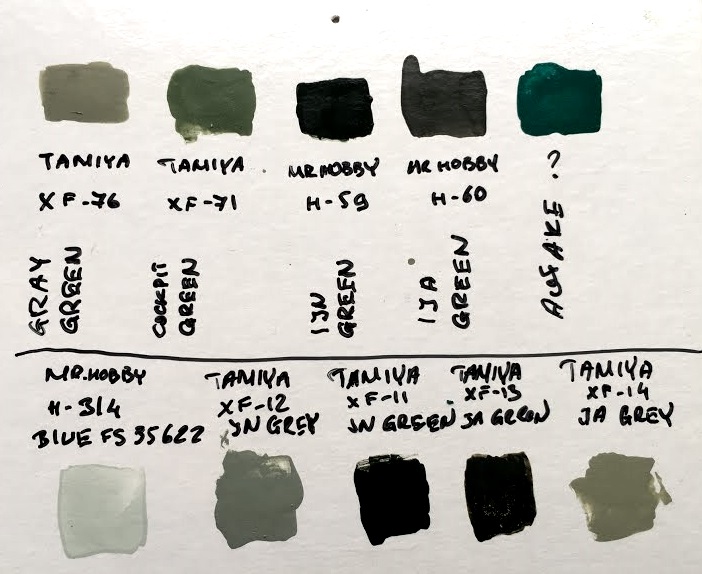 TAMIYA
XF-76
GRAY
GREEN
TAMIYA
XF-71
COCKPIT
GREEN
MR.HOBBY
H-59
IJN
GREEN
MR HOBBY
H-60
IJA
GREEN
?
MR.HOBBY
H-314
BLUE FS 35622
TAMIYA
XF-12
JN GREY
TAMIYA
XF-11
JN GREEN
TAMIYA
XF-13
JA GREEN
TAMIYA
XF-14
JA GREY